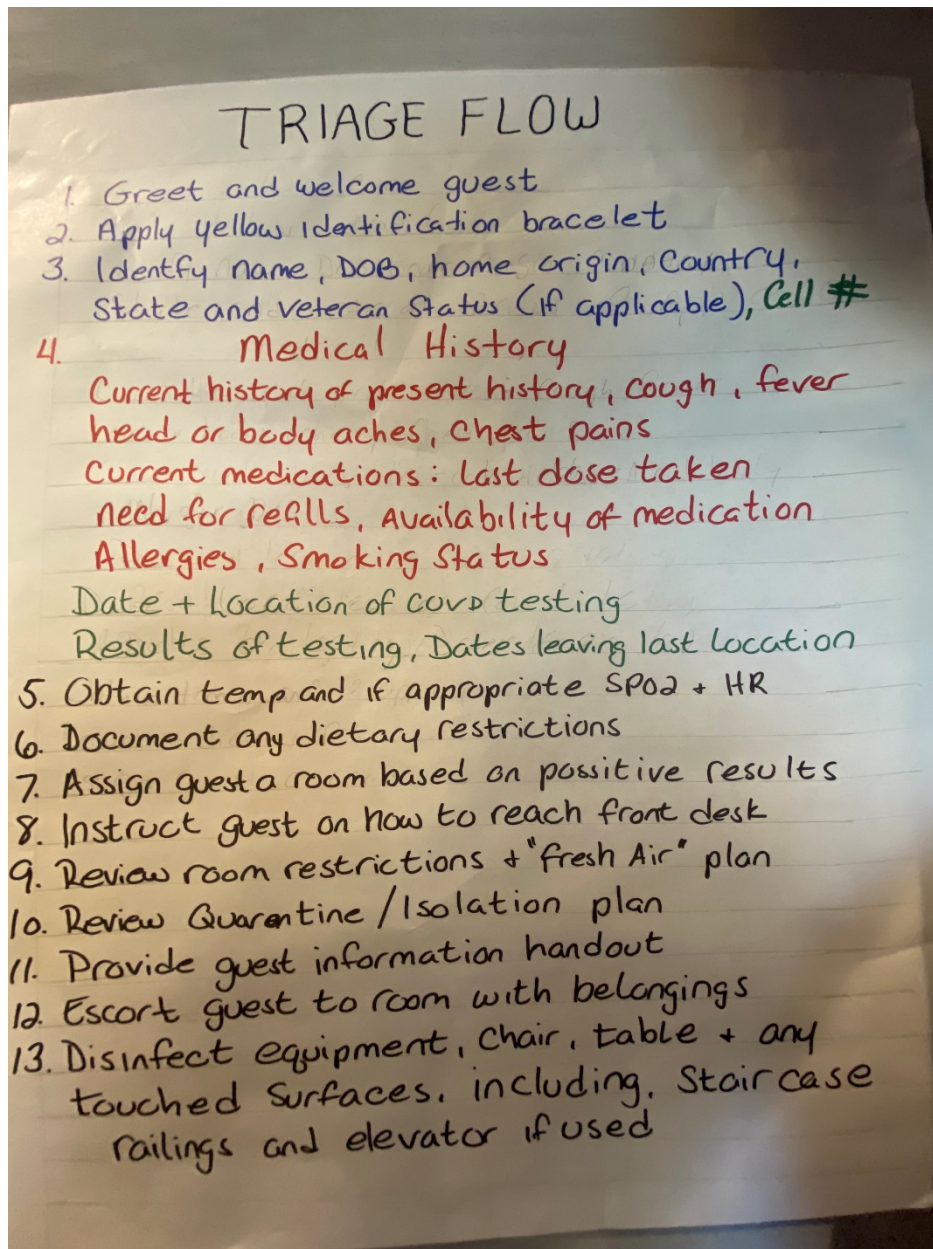 TRIAGE FLOW
1. Greet and welcome guest
2. Apply yellow identification bracelet
3. Identfy name, DOB, home origin, Country,
State and veteran Status (if applicable), Cell #
4. Medical History
Current history of present history, cough, fever
head or body aches, chest pains
Current medications: last dose taken
need for refills, Availability of medication
Allergies, Smoking Status
Date + Location of COVD testing
Results of testing, Dates leaving last location
5. Obtain temp and if appropriate SPO2 + HR
6. Document any dietary restrictions
7. Assign guest a room based on possitive results
8. Instruct guest on how to reach front desk
9. Review room restrictions + "fresh Air" plan
10. Review Quarentine / Isolation plan
11. Provide guest information handout
12. Escort guest to room with belongings
13. Disinfect equipment, Chair, table + any
touched surfaces, including, Staircase
railings and elevator if used